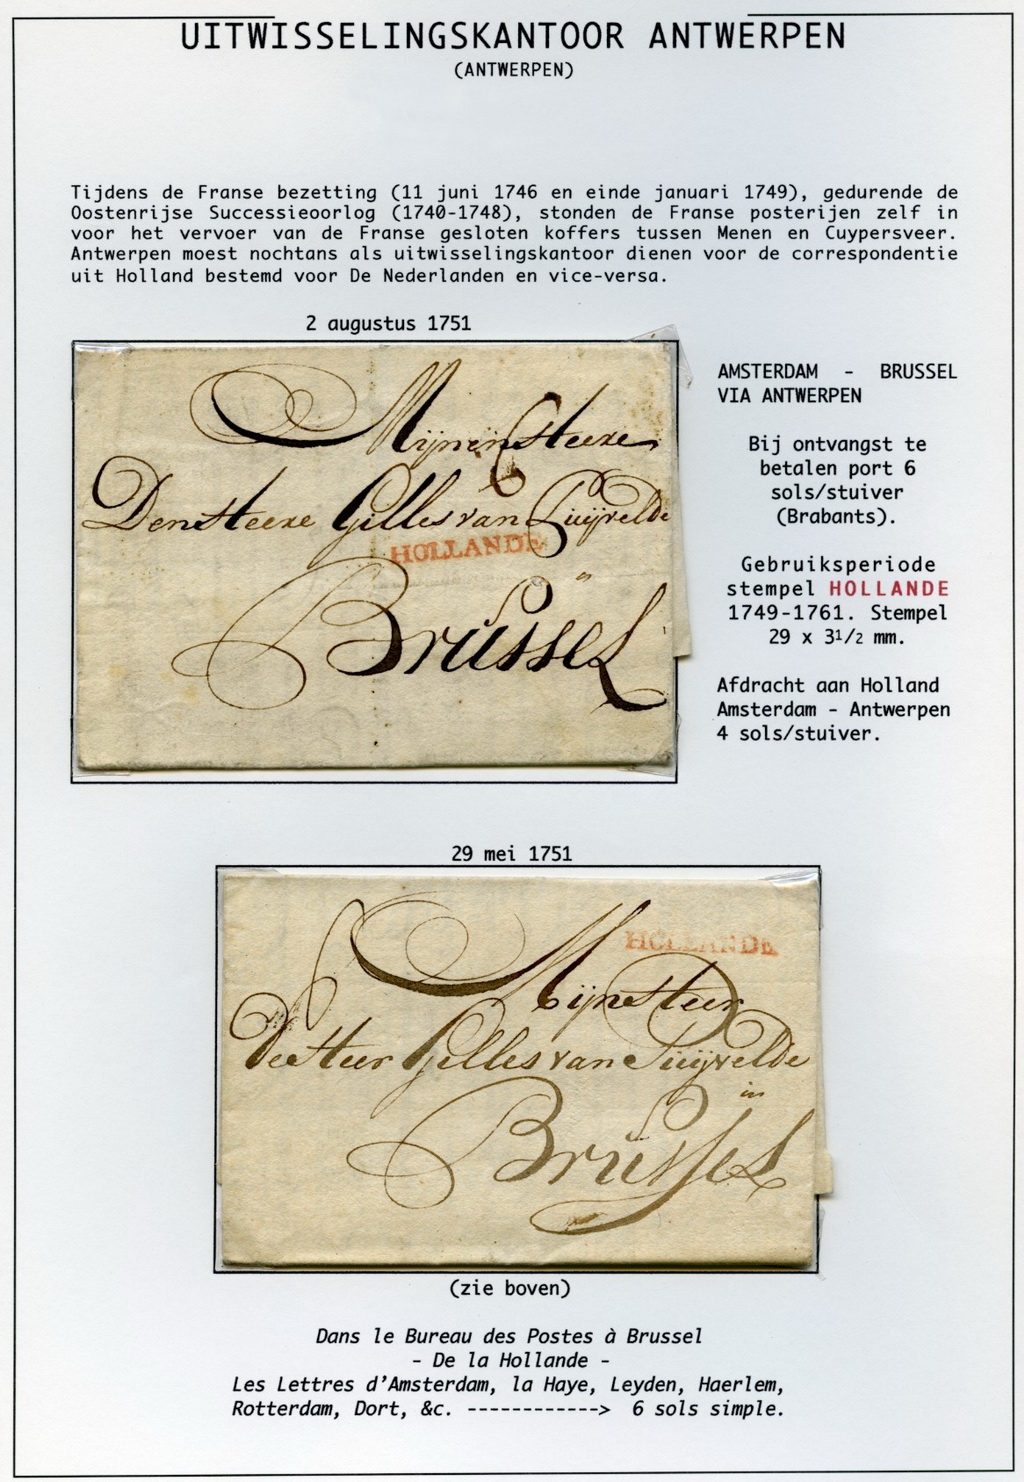 UITWISSELINGSKANTOOR ANTWERPEN
(ANTWERPEN)
Tijdens de Franse bezetting (11 juni 1746 en einde januari 1749), gedurende de
Oostenrijse Successieoorlog (1740-1748), stonden de Franse posterijen zelf in
voor het vervoer van de Franse gesloten koffers tussen Menen en Cuypersveer.
Antwerpen moest nochtans als uitwisselingskantoor dienen voor de correspondentie
uit Holland bestemd voor De Nederlanden en vice-versa.
2 augustus 1751
Mijnen Heere
Den Heere Gilles van Puijvelde
HOLLANDE
in
Brussel
AMSTERDAM - BRUSSEL
VIA ANTWERPEN
Bij ontvangst te
betalen port 6
sols/stuiver
(Brabants).
Gebruiksperiode
stempel HOLLANDE
1749-1761. Stempel
29 x 3 1/2 mm.
Afdracht aan Holland
Amsterdam - Antwerpen
4 sols/stuiver.
29 mei 1751
HOLLANDE
Mijn Heer
De Heer Gilles van Puijvelde
in
Brussel
(zie boven)
Dans le Bureau des Postes à Brussel
- De la Hollande -
Les Lettres d'Amsterdam, la Haye, Leyden, Haerlem,
Rotterdam, Dort, &c. ------------> 6 sols simple.